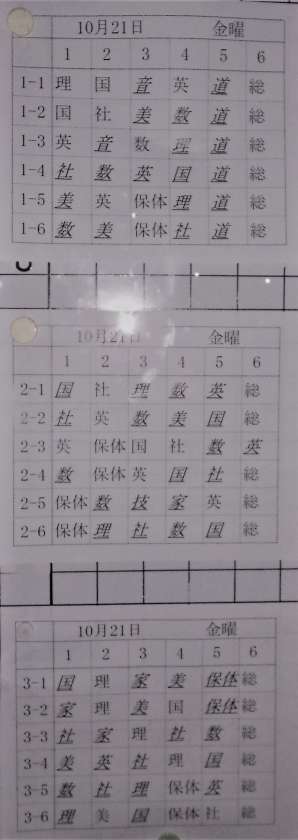 10月21日 金曜
1 2 3 4 5 6
1-1 理 国 音 英 道 総
1-2 国 社 美 数 道 総
1-3 英 音 数 理 道 総
1-4 社 数 英 国 道 総
1-5 美 英 保体 理 道 総
1-6 数 美 保体 社 道 総
10月21日 金曜
1 2 3 4 5 6
2-1 国 社 理 数 英 総
2-2 社 英 数 美 国 総
2-3 英 保体 国 社 数 英
2-4 数 保体 英 国 社 総
2-5 保体 数 技 家 英 総
2-6 保体 理 社 数 国 総
10月21日 金曜
1 2 3 4 5 6
3-1 国 理 家 美 保体 総
3-2 家 理 美 国 保体 総
3-3 社 家 理 社 数 総
3-4 美 英 社 理 国 総
3-5 数 社 理 保体 英 総
3-6 理 美 国 保体 社 総